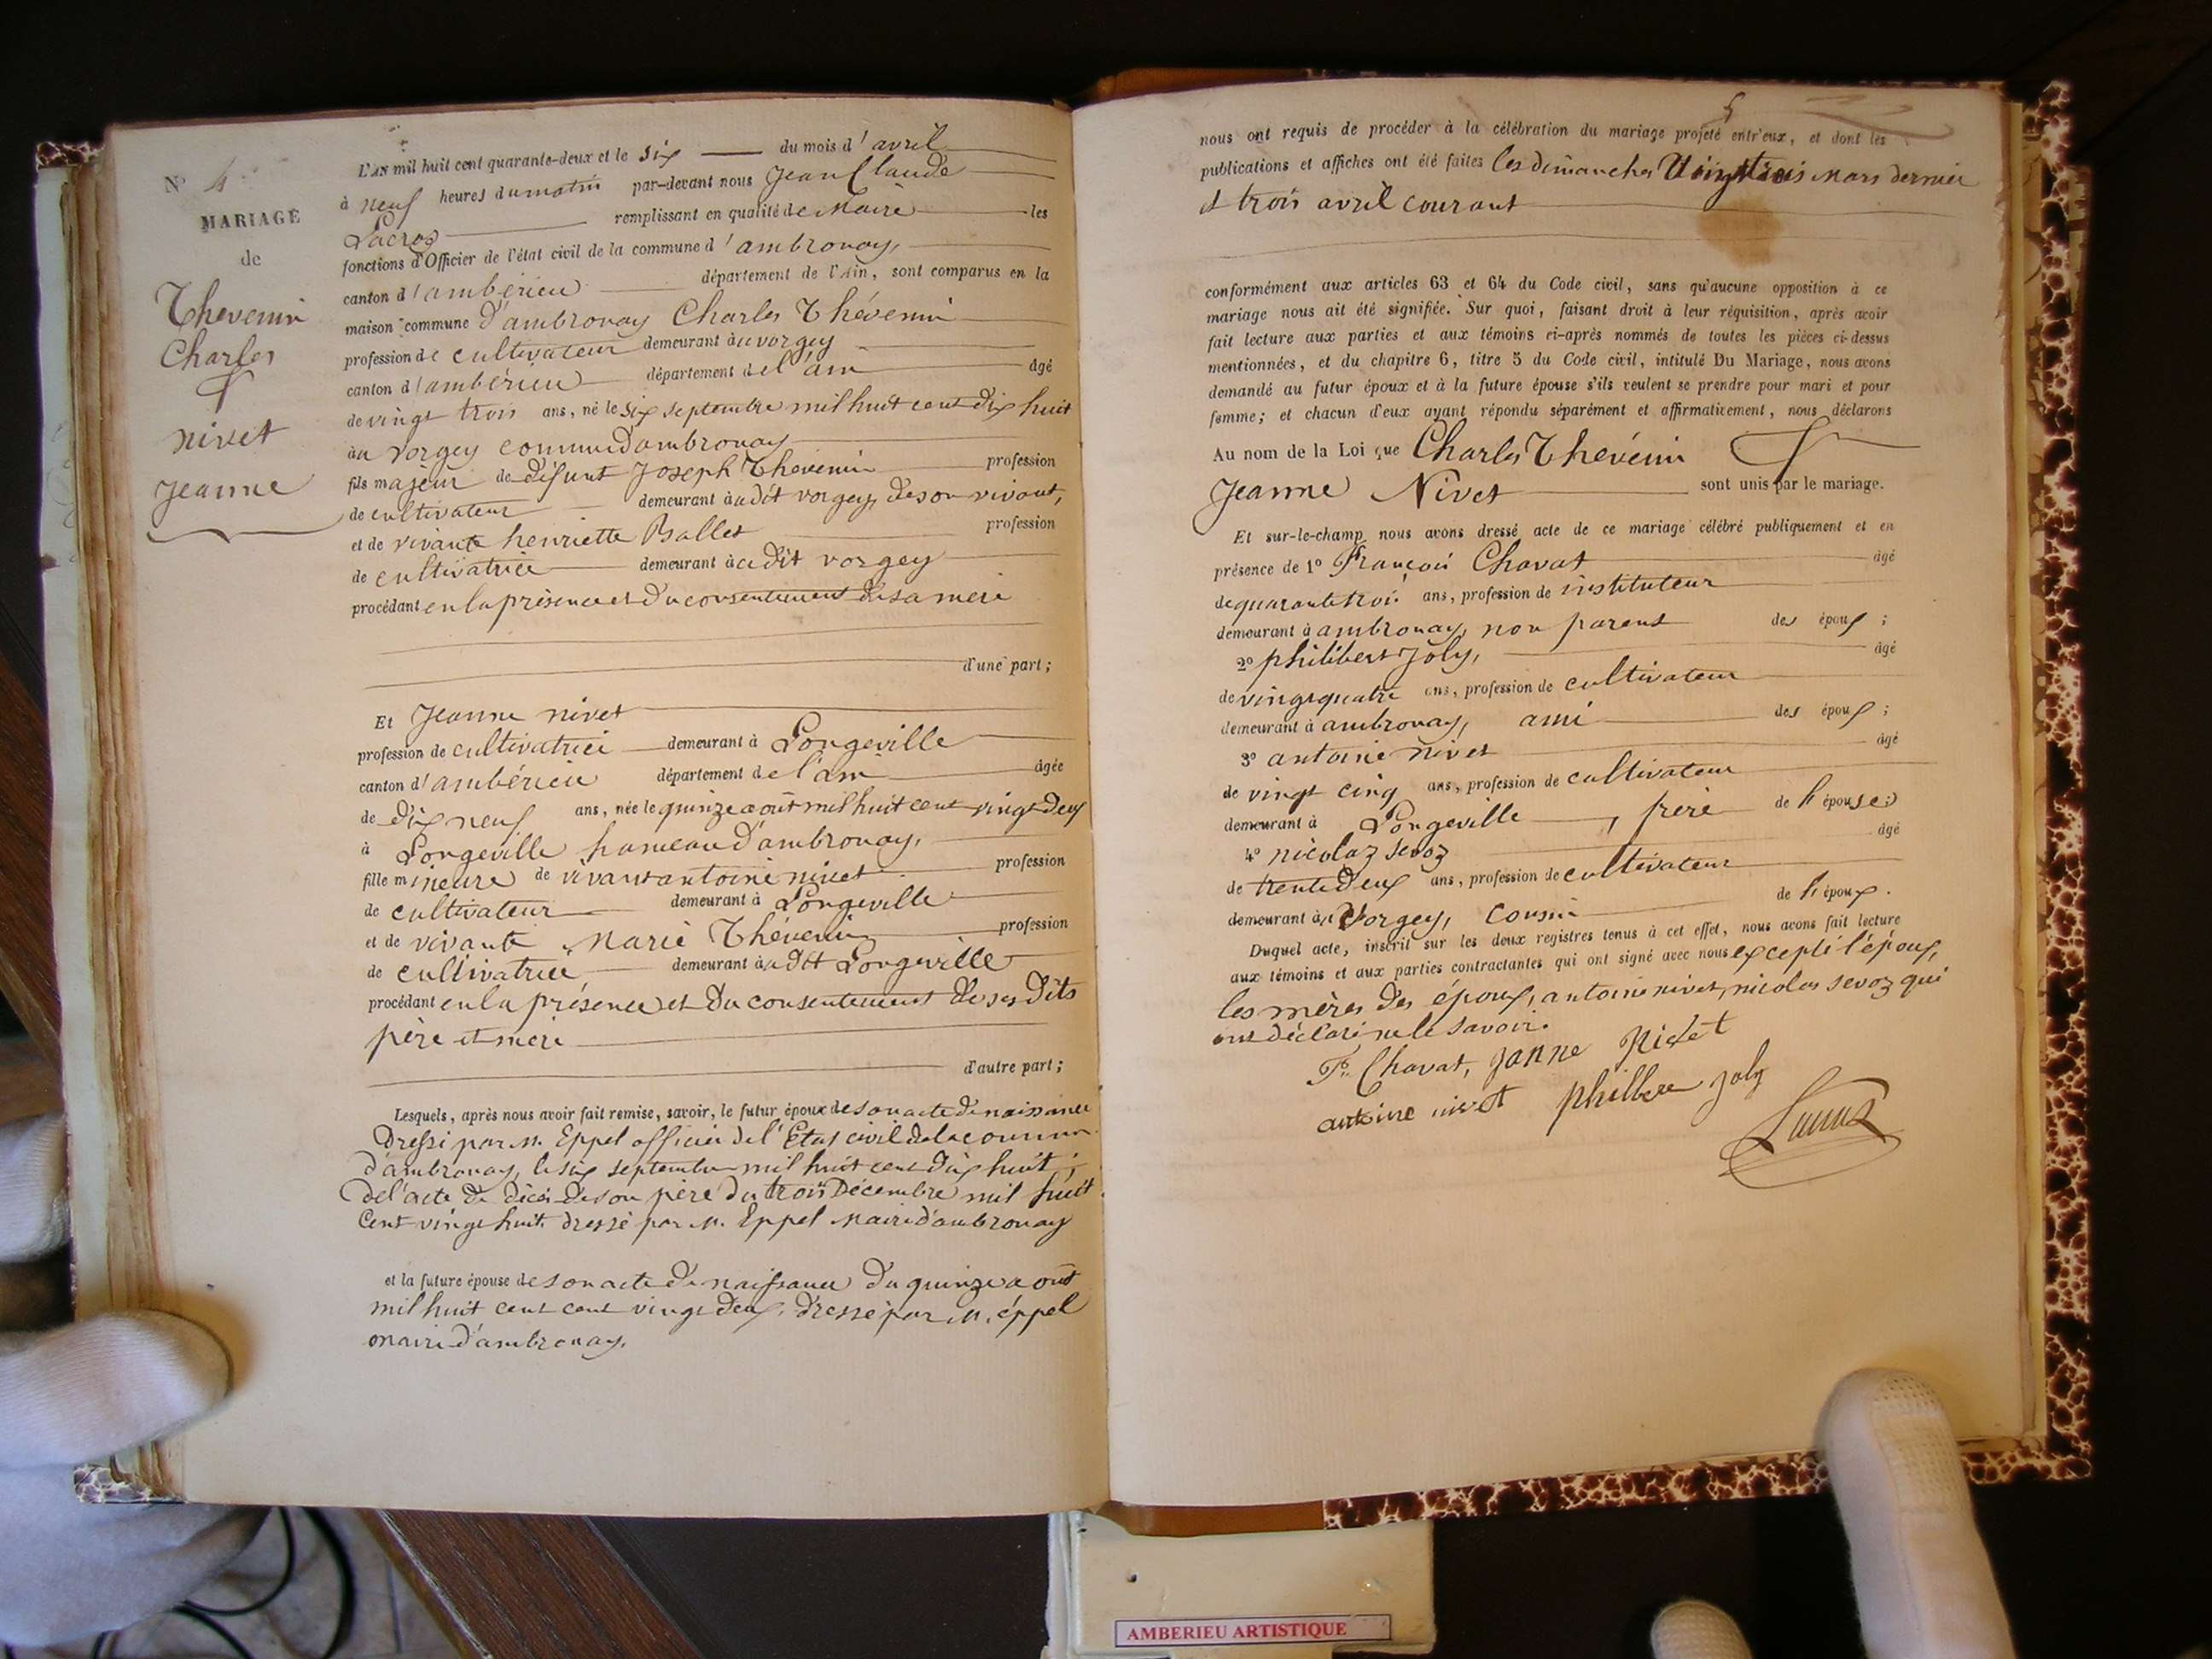 N° 4
MARIAGE
de
Thevenin
Charles
&
nivet
Jeanne
L'AN mil huit cent quarante-deux et le six du mois d'avril
à neuf heures du matin par-devant nous Jean Claude
remplissant en qualité de Maire les
fonctions d'Officier de l'état civil de la commune d'ambronay,
canton d'ambérieu département de l'Ain, sont comparus en la
maison commune d'ambronay Charles Thévenin
profession de cultivateur demeurant au vorgey
canton d'ambérieu département de l'ain âgé
de vingt trois ans, né le six septembre mil huit cent dix huit
au vorgey commune d'ambronay
fils majeur de défunt Joseph Thevenin profession
de cultivateur demeurant audit vorgey, de son vivant,
et de vivante henriette Ballet profession
de cultivatrice demeurant audit vorgey
procédant en la présence et du consentement de sa mère
d'une part;
Et Jeanne nivet
profession de cultivatrice demeurant à Longeville
canton d'ambérieu département de l'ain âgée
de dix neuf ans, née le quinze août mil huit cent vingt deux
à Longeville hameau d'ambronay,
fille mineure de vivant antoine nivet profession
de cultivateur demeurant à Longeville
et de vivante Marie Thévenin profession
de cultivatrice demeurant audit Longeville
procédant en la présence et du consentement de ses dits
père et mère
d'autre part;
Lesquels, après nous avoir fait remise, savoir, le futur époux de son acte de naissance
dressé par M. Eppel officier de l'Etat civil de la commune
d'ambronay, le six septembre mil huit cent dix huit;
de l'acte de décès de son père du trois Décembre mil huit
Cent vingt huit dressé par M. Eppel Maire d'ambronay
et la future épouse de son acte de naissance du quinze août
mil huit cent cent vingt deux, dressé par M. éppel
maire d'ambronay.
5
nous ont requis de procéder à la célébration du mariage projeté entr'eux, et dont les
publications et affiches ont été faites les dimanches Mars dernier
et trois avril courant
conformément aux articles 63 et 64 du Code civil, sans qu'aucune opposition à ce
mariage nous ait été signifiée. Sur quoi, faisant droit à leur réquisition, après avoir
fait lecture aux parties et aux témoins ci-après nommés de toutes les pièces ci-dessus
mentionnées, et du chapitre 6, titre 5 du Code civil, intitulé Du Mariage, nous avons
demandé au futur époux et à la future épouse s'ils veulent se prendre pour mari et pour
femme; et chacun d'eux ayant répondu séparément et affirmativement, nous déclarons
Au nom de la Loi que Charles Thevénin &
Jeanne Nivet sont unis par le mariage.
Et sur-le-champ nous avons dressé acte de ce mariage célébré publiquement et en
présence de 1° François Chavat âgé
de quarante trois ans, profession de instituteur
demeurant à ambronay, non parent des époux;
2° philibert Joly, âgé
de vingt quatre ans, profession de cultivateur
demeurant à ambronay, ami des époux;
3° antoine nivet âgé
de vingt cinq ans, profession de cultivateur
demeurant à Longeville, frère de l'épouse;
4° nicolaz sevoz âgé
de trente deux ans, profession de cultivateur
demeurant au Vorgey, cousin de l'époux.
Duquel acte, inscrit sur les deux registres tenus à cet effet, nous avons fait lecture
aux témoins et aux parties contractantes qui ont signé avec nous excepté l'époux,
les mères des époux, antoine nivet, nicolas sevoz qui
ont déclaré ne le savoir.
Fs. Chavat, Janne Nivet
antoine nivet philibere joly
AMBERIEU ARTISTIQUE